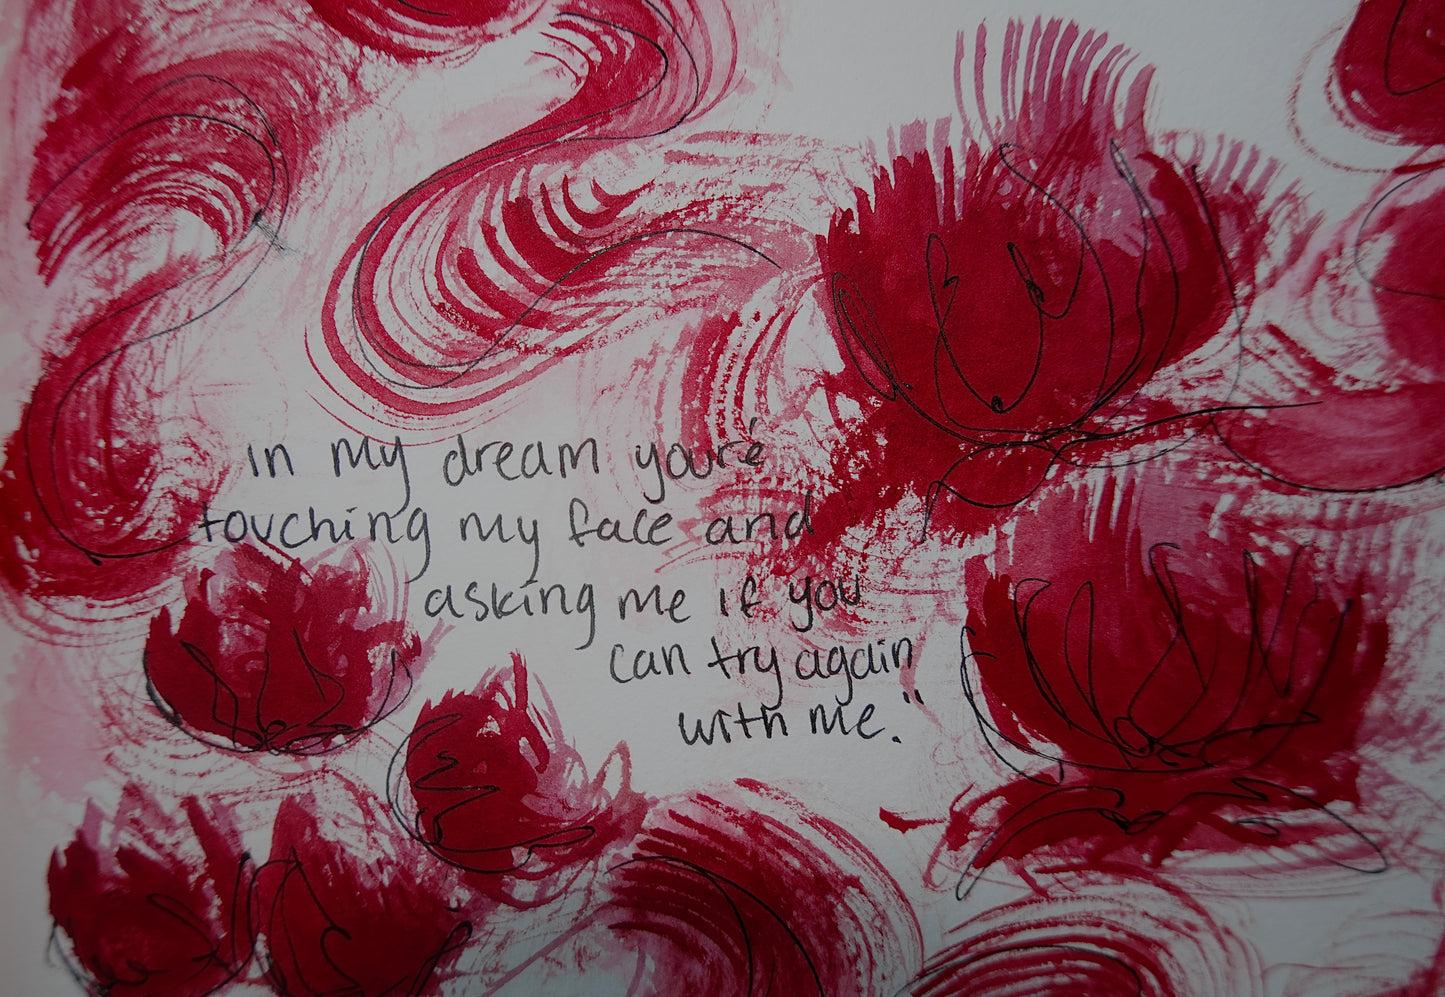 in my dream you're
touching my face and
asking me if you
can try again
with me."